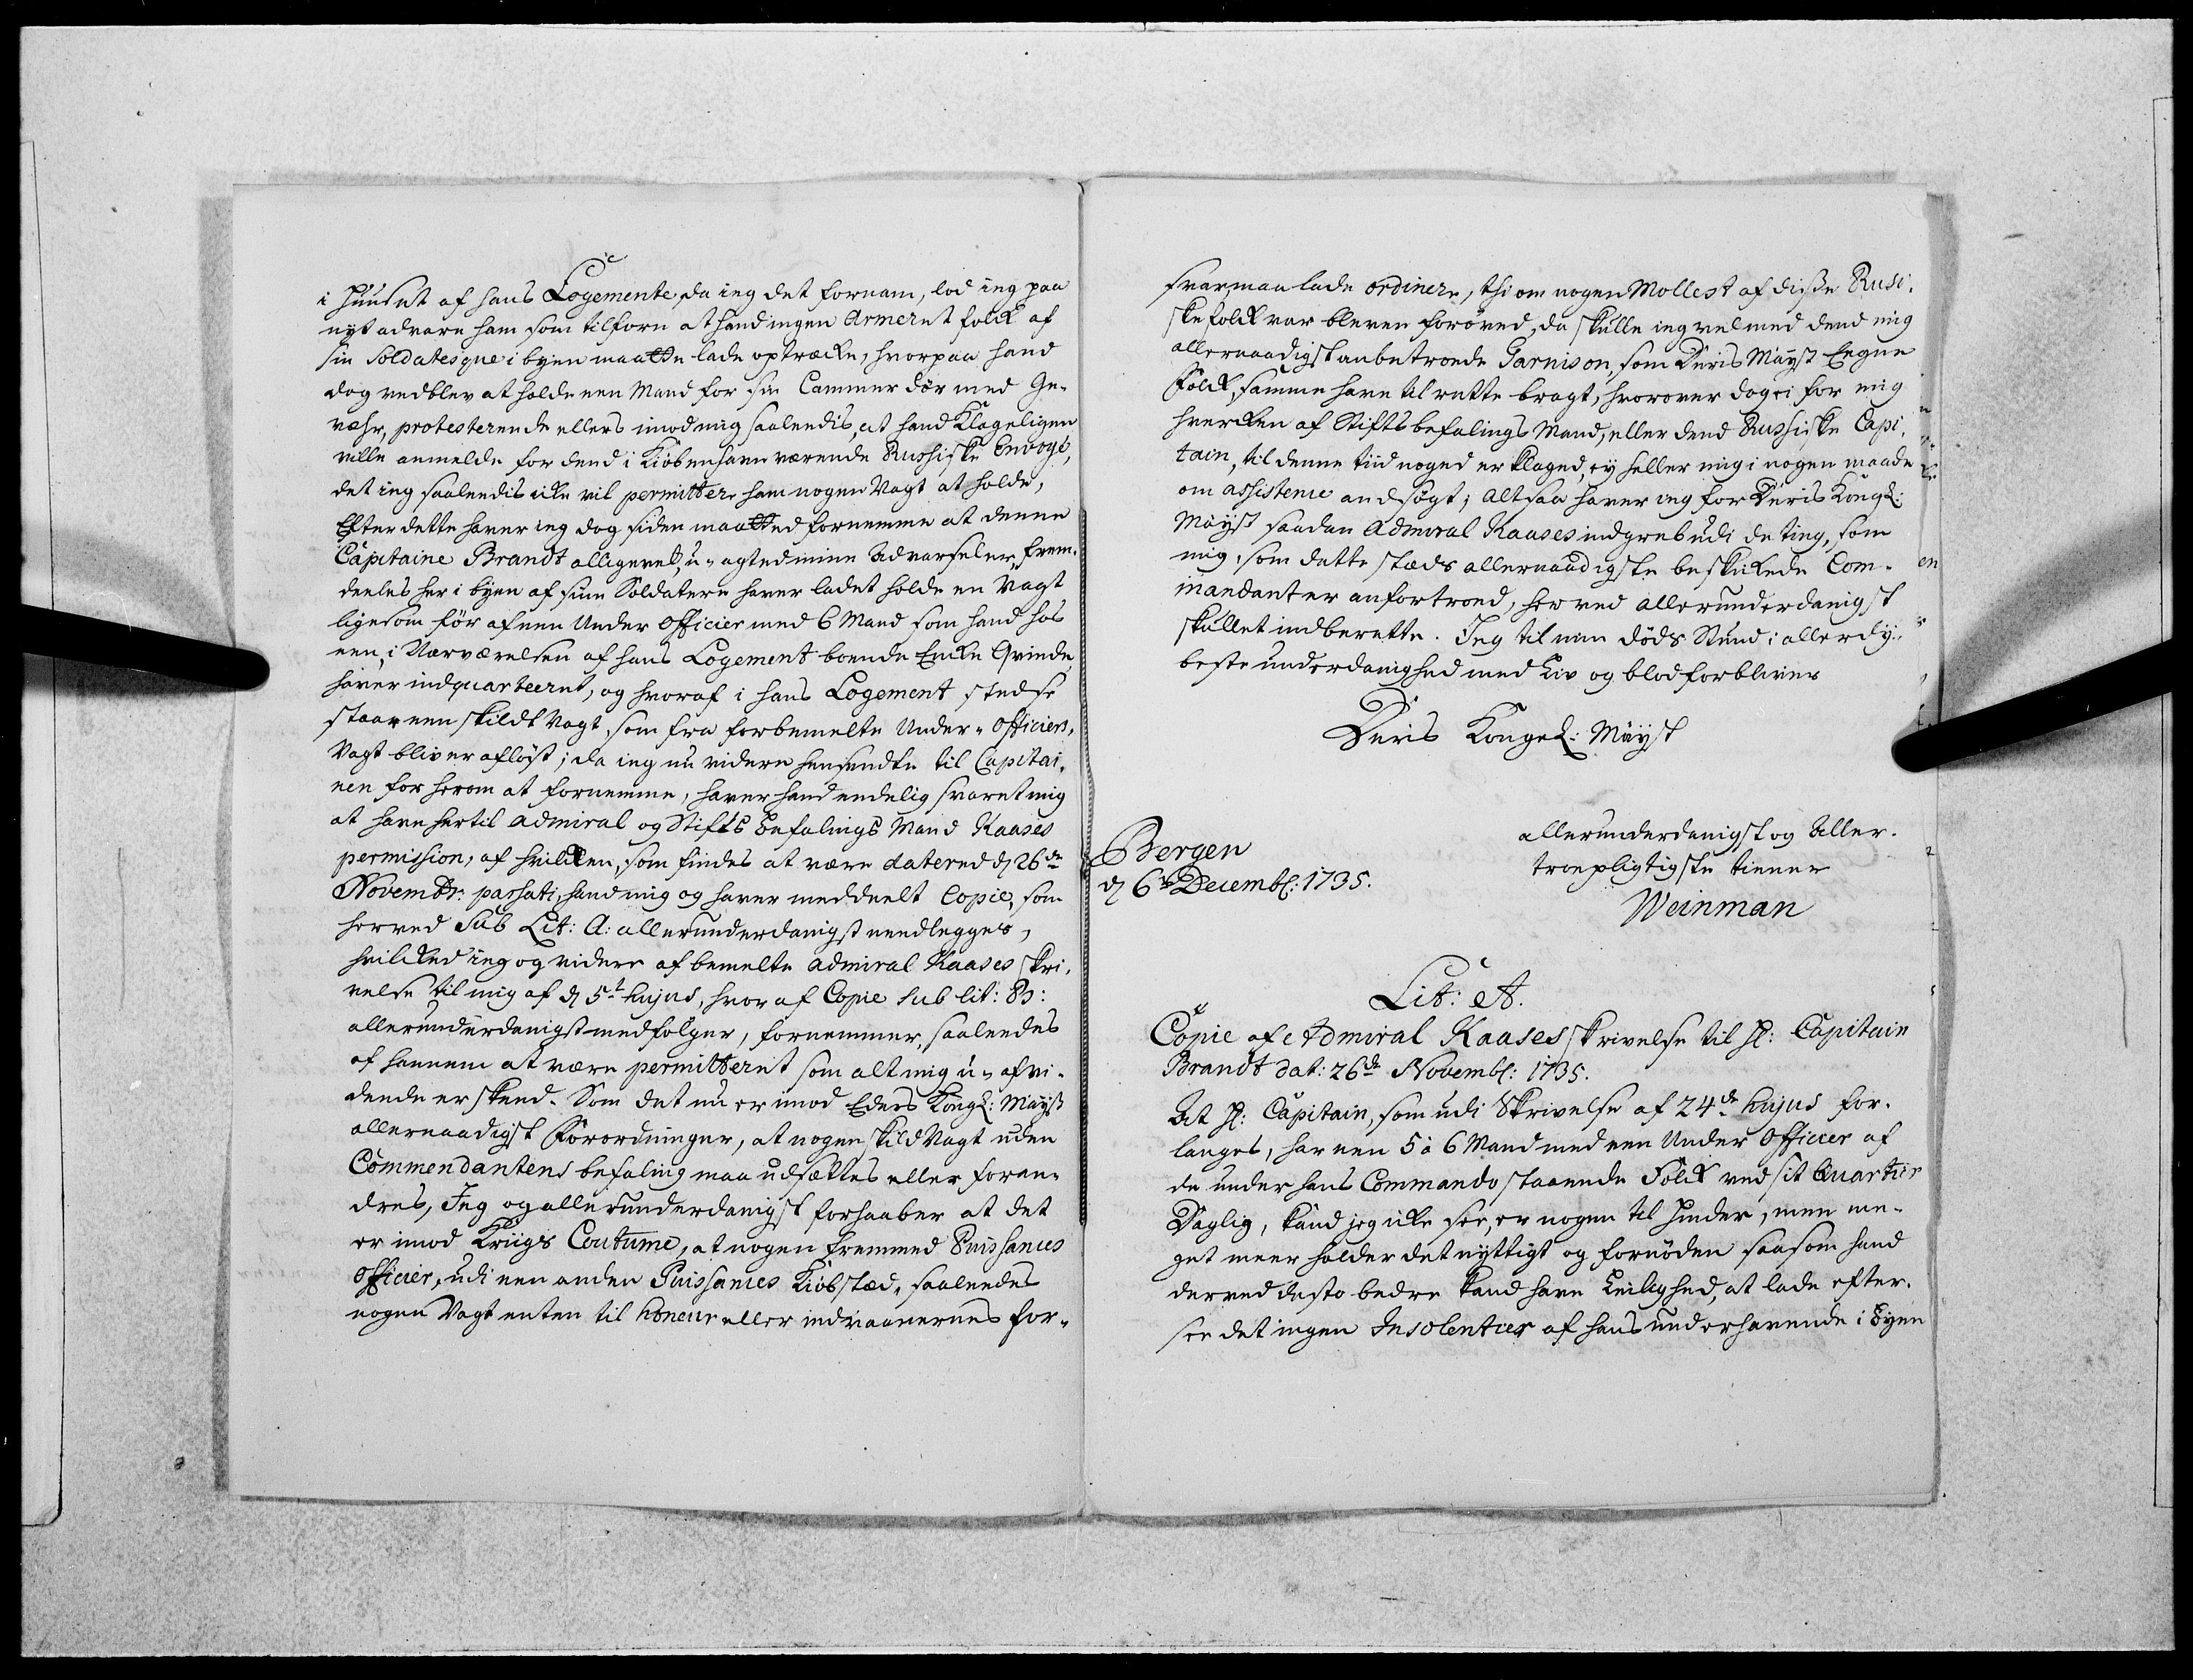 i Huuset af hans Logemente, da ieg det fornam, lod ieg paa
nyt advare ham som tilforn at hand ingen Armeret folck af
sin Soldatesque i byen maatte lade optrække, hvorpaa hand
dog vedblev at holde een Mand for sin Cammer dör med Ge-
væhr, protesterende ellers imod mig saalendis, at hand Klageligen
ville anmelde for dend i Kiöbenhavn værende Russiske Envoyé,
det ieg saalendis icke vil permittere ham nogen Vagt at holde,
Efter dette haver ieg dog siden maatted fornemme at denne
Capitaine Brandt alligevel, u-agted mine Advarseler, frem-
deeles her i byen af sine Soldatere haver ladet holde en Vagt
ligesom för af een Under Officier med 6 Mand som hand hos
een, i Nærværelsen af hans Logement boende Encke Qvinde,
haver indquarteeret, og hvoraf i hans Logement stedse
staar een skildt Vagt, som fra forbemelte Under-Officiers
Vagt bliver aflöst; da ieg nu videre hensendte til Capitai-
nen for herom at fornemme, haver hand endelig svaret mig
at have hertil Admiral og Stifts befalings Mand Kaases
permission, af hvilcken, som findes at være datered d 26de
Novembr: passati, hand mig og haver meddeelt Copie, som
herved Sub Lit: A: allerunderdanigst needlegges,
hvilcked ieg og videre af bemelte Admiral Kaases skri-
velse til mig af d 5t hujus, hvor af Copie sub lit: B:
allerunderdanigst medfölger, fornemmer, saaleedes
af hannem at være permitteret som alt mig u-afvi-
dende er skeed. Som det nu er imod Eders Kongl: Mayst
allernaadigst Forordninger, at nogen skild Vagt uden
Commendantens befaling maa udsættes eller foran-
dres, Jeg og allerunderdanigst forhaaber at det
er imod Kriigs Coutume, at nogen fremmed Puissances
officier, udi een anden Puissances Kiöbstæd, saaleedes
nogen Vagt enten til honeur eller indvaanernes for-
svar, maa lade ordinere, thi om nogen Mollest af disse Rusi-
ske folck var bleven foröved, da skulle ieg vel med dend mig
allernaadigst anbetroede Garnison, som Deris Mayst Eegne
Folck, samme have til rette bragt, hvorover dog ei for mig
hvercken af Stiftsbefalings Mand, eller dend Russiske Capi-
tain, til denne tiid noged er klaged, ey heller mig i nogen maade
om assistence andsögt; Altsaa haver ieg for Deris Kongl:
Mayst saadan Admiral Kaases indgreb udi de ting, som
mig, som dette stæds allernaadigste beskickede Com-
mandant er anfortroed, herved allerunderdanigst
skullet indberette. Jeg til min döds Stund i allerdy-
beste underdanighed med Liv og blod forbliver
Deris Kongel: Mayst
allerunderdanigst og Aller-
troepligtigste tienner
Weinman
Bergen
d 6te Decembr: 1735.
Lit: A.
Copie af Admiral Kaases skrivelse til Hr: Capitain
Brandt dat: 26de Novembr: 1735.
At Hr: Capitain, som udi Skrivelse af 24de hujus for-
langes, har een 5 à 6 Mand med een Under Officier af
de under hans Commando staaende Folck ved sit Quartier
Daglig, kand jeg icke see, er nogen til Hinder, men me-
get meer holder det nyttigt og fornöden saasom hand
derved desto bedre kand have Leilighed, at lade efter-
see det ingen Insolentier af hans underhavende i Byen